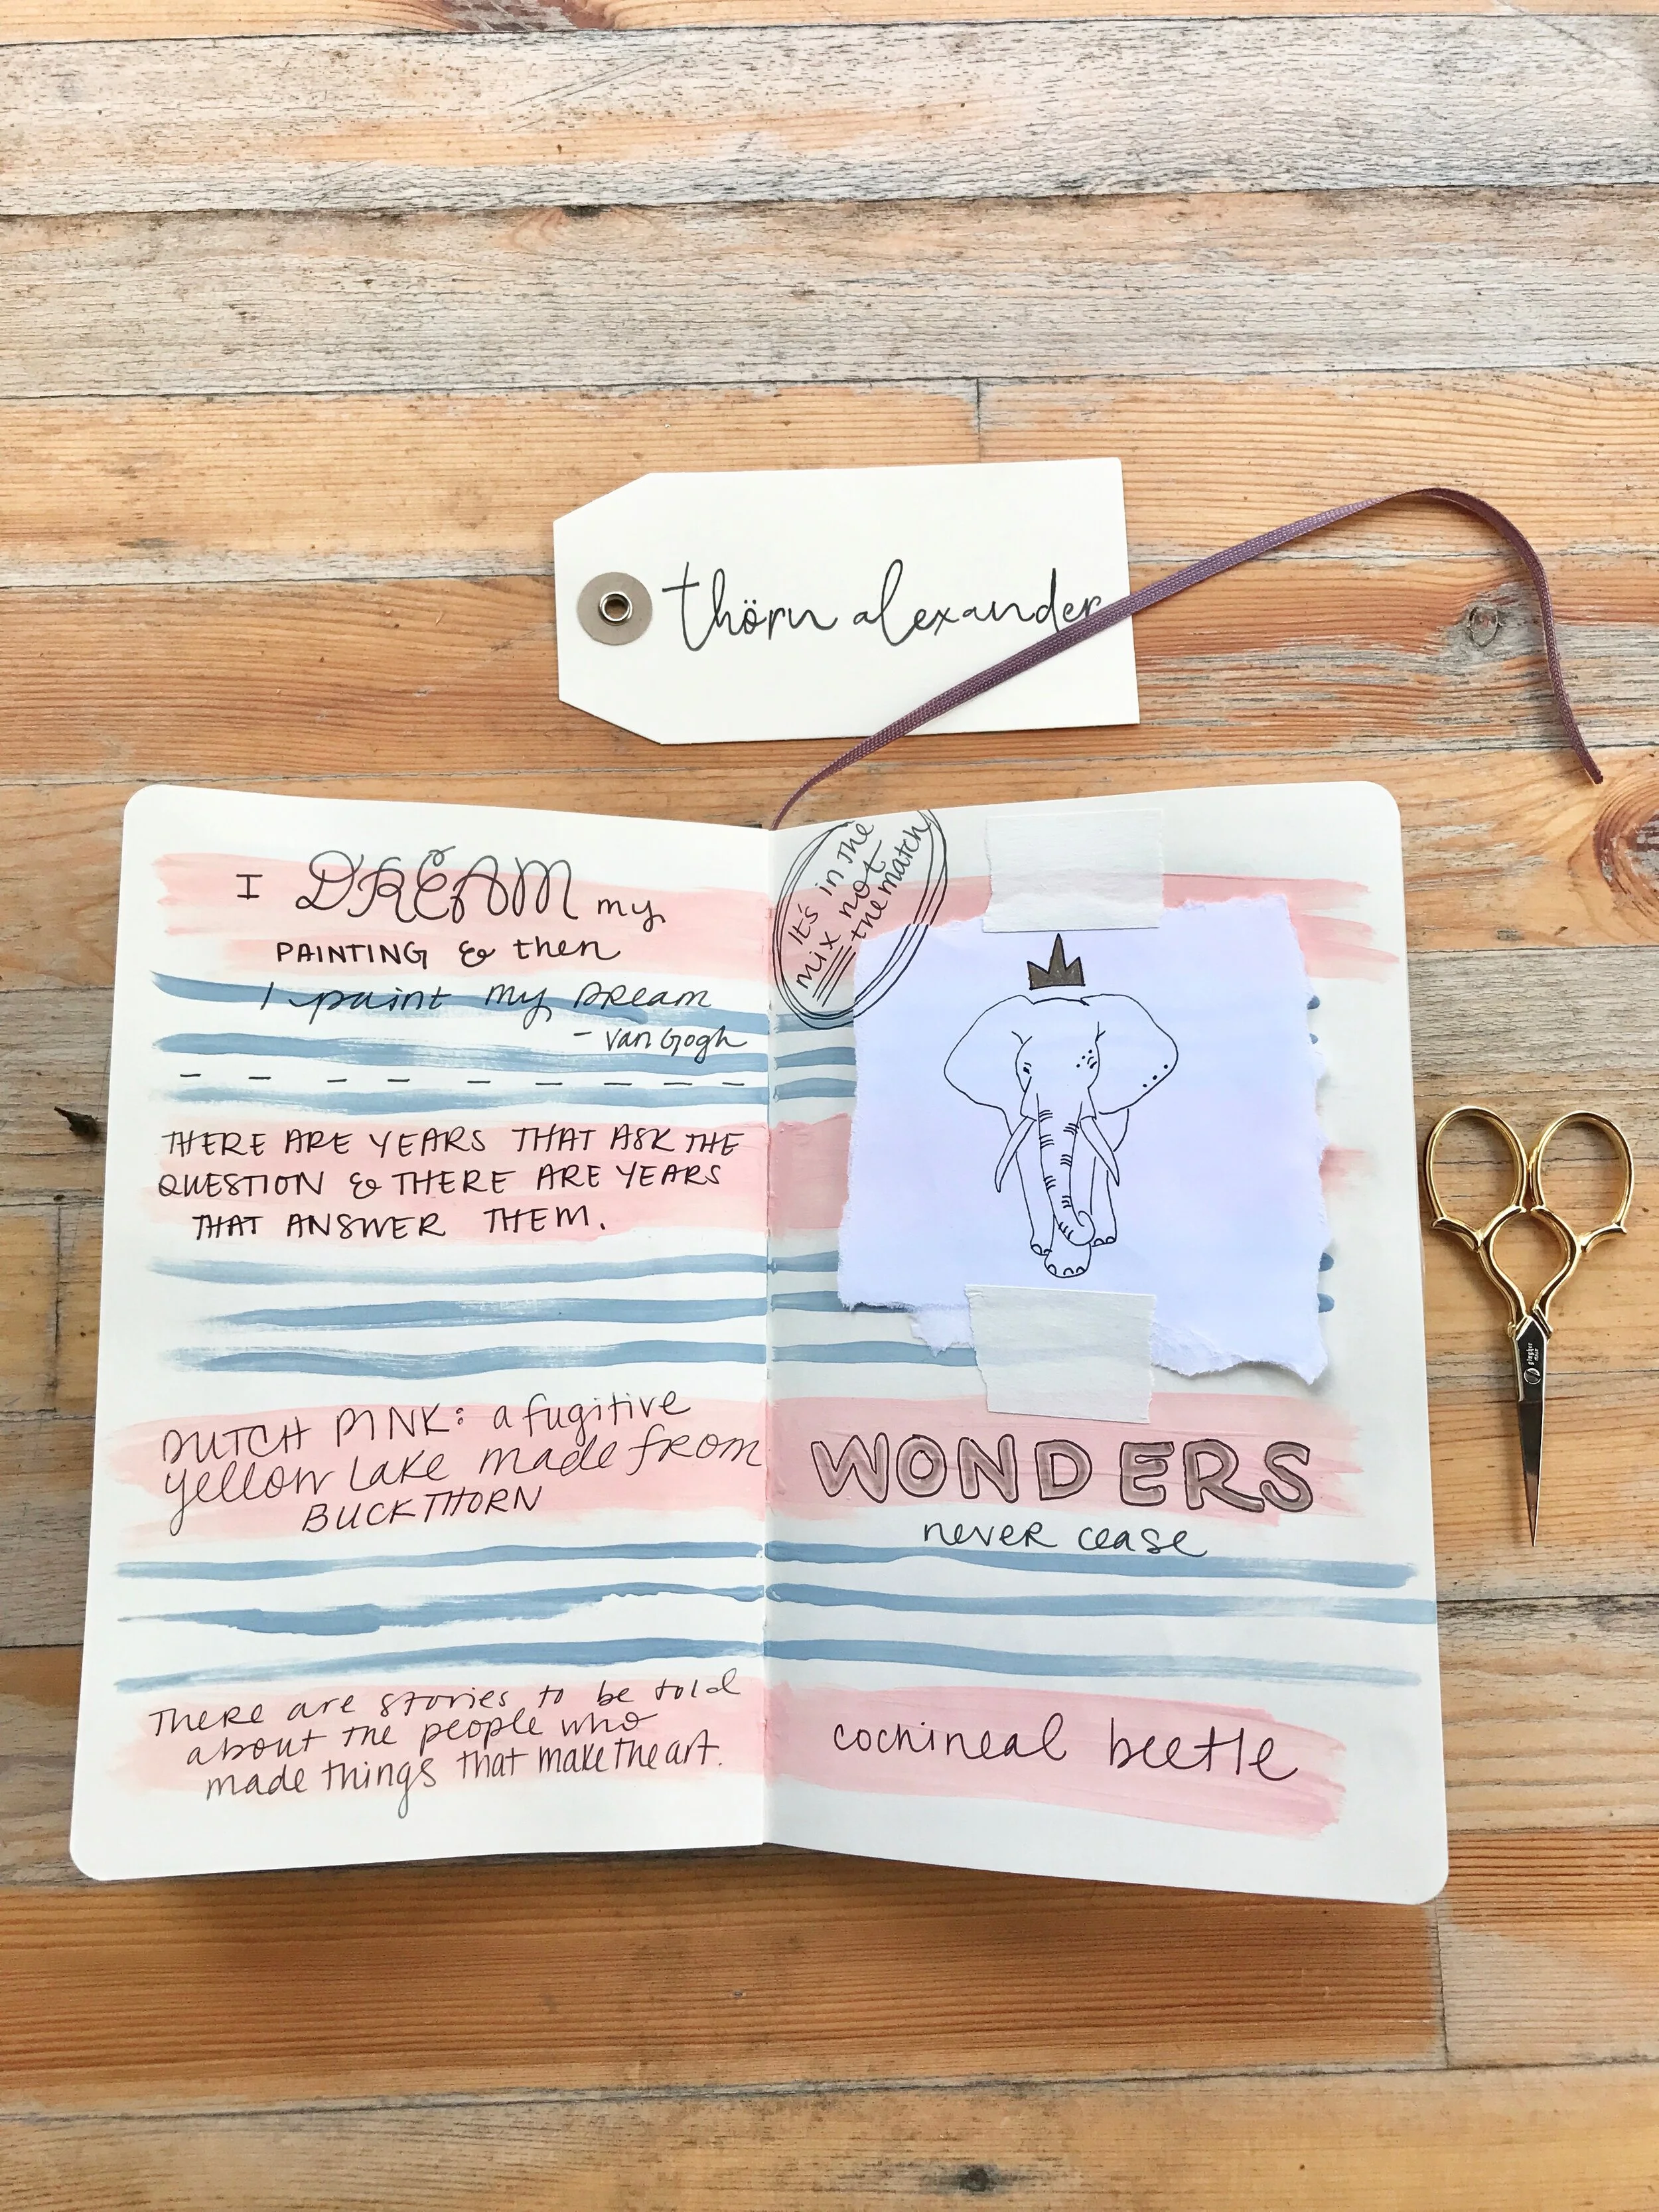 thörn alexander
I DREAM my
PAINTING & then
I paint my DReam
- van Gogh
THERE ARE YEARS THAT ASK THE
QUESTION & THERE ARE YEARS
THAT ANSWER THEM.
DUTCH PINK: a fugitive
yellow Lake made from
BUCKTHORN
THERE are stories to be told
about the people who
made things that make the art.
It's in the
mix not
the match
WONDERS
never cease
cochineal beetle